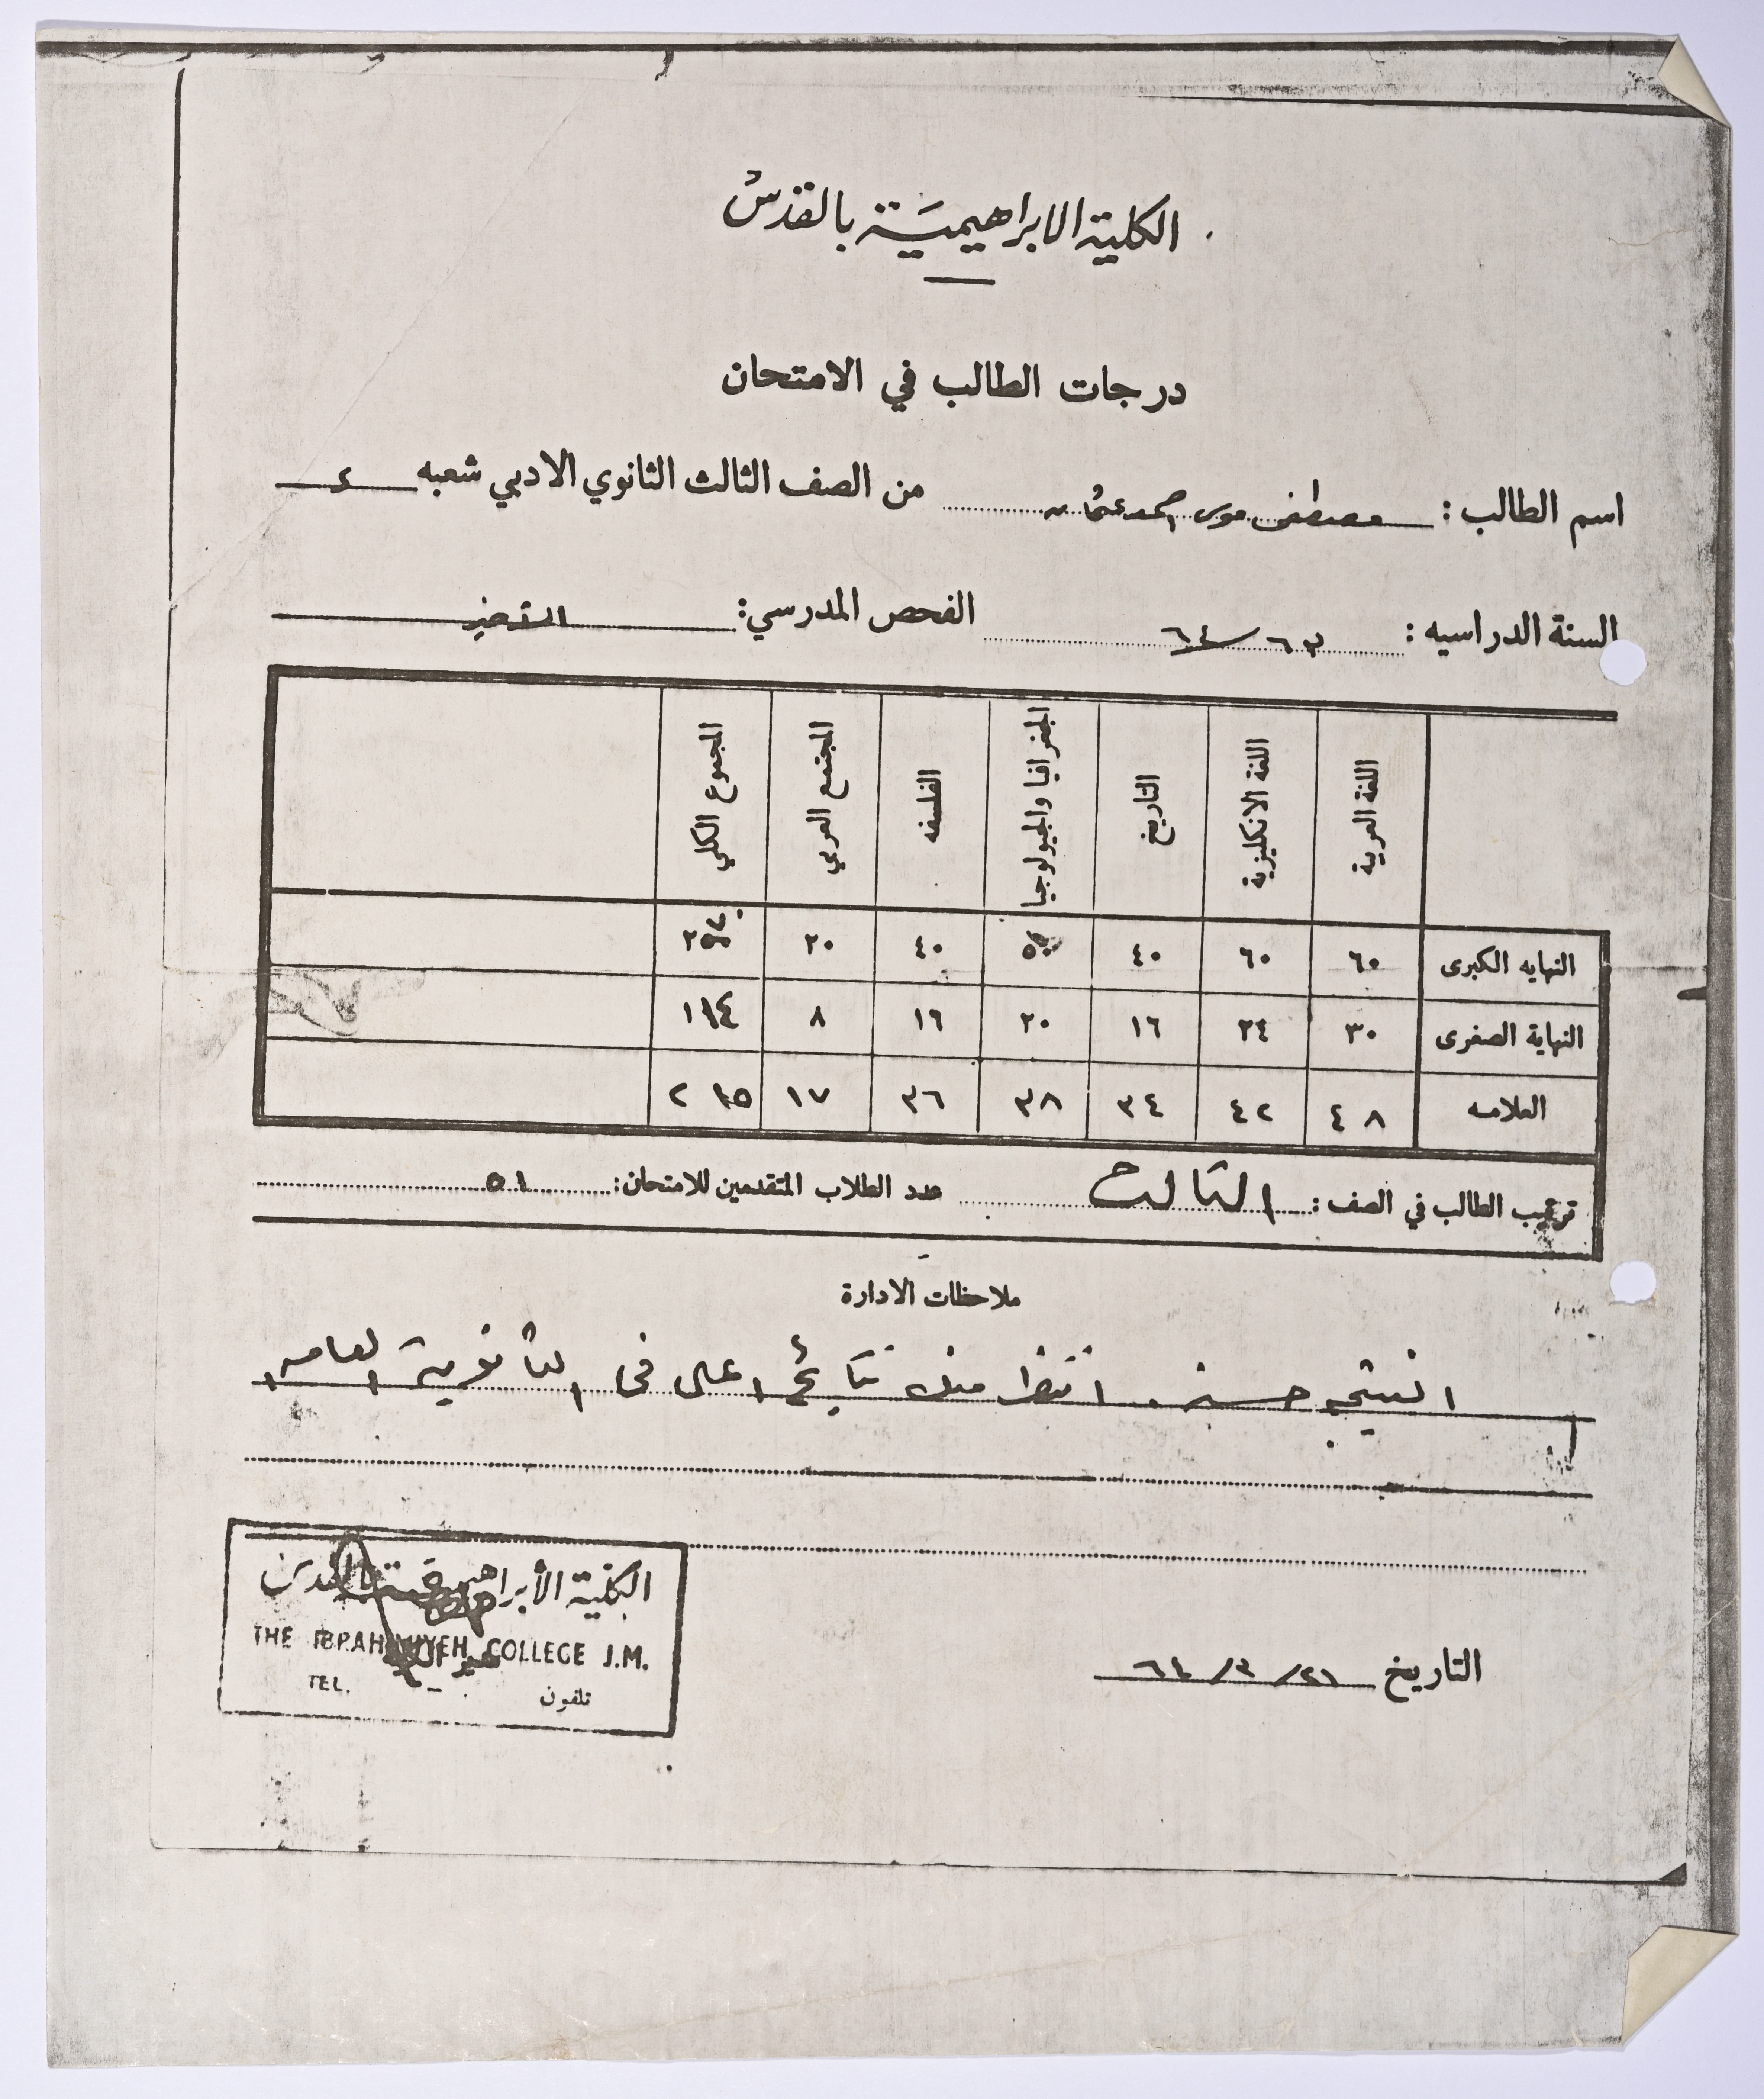 الكلية الابراهيميَّة بالقدس
درجات الطالب في الامتحان
اسم الطالب : مصطفى موسى احمد عثمان من الصف الثالث الثانوي الادبي شعبه ء
السنة الدراسيه : ٦٣/٦٤ الفحص المدرسي:
اللغة العربية اللغة الانكليزية التاريخ الجغرافيا والجيولوجيا الفلسفه المجتمع العربي المجموع الكلي
النهايه الكبرى ٦٠ ٦٠ ٤٠ ٥٠ ٤٠ ٢٠
النهاية الصغرى ٣٠ ٢٤ ١٦ ٢٠ ١٦ ٨ ١١٤
العلامه ٤٨ ٤٢ ٣٤ ٣٨ ٣٦ ١٧ ٢١٥
ترتيب الطالب في الصف : الثالث عدد الطلاب المتقدمين للامتحان: ٥١
ملاحظات الادارة
النتيجه حسنه . انتظر منك نتائج اعلى في الثانوية العامه
التاريخ ٢١/٣/٦٤
الكلية الأبراهيمية بالقدس
THE IBRAHIMIYEH COLLEGE J.M.
TEL. تلفون